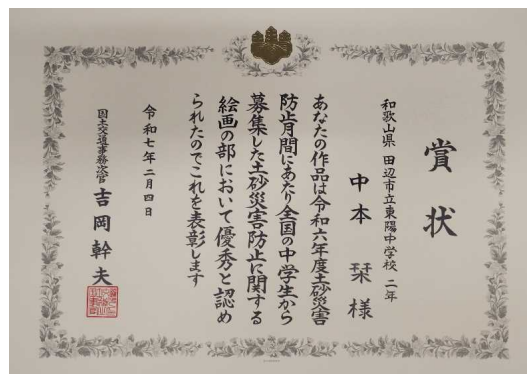 賞状
和歌山県 田辺市立東陽中学校 二年
中本 栞 様
あなたの作品は令和六年度土砂災害
防止月間にあたり全国の中学生から
募集した土砂災害防止に関する
絵画の部において優秀と認め
られたのでこれを表彰します
令和七年二月四日
国土交通事務次官 吉岡幹夫